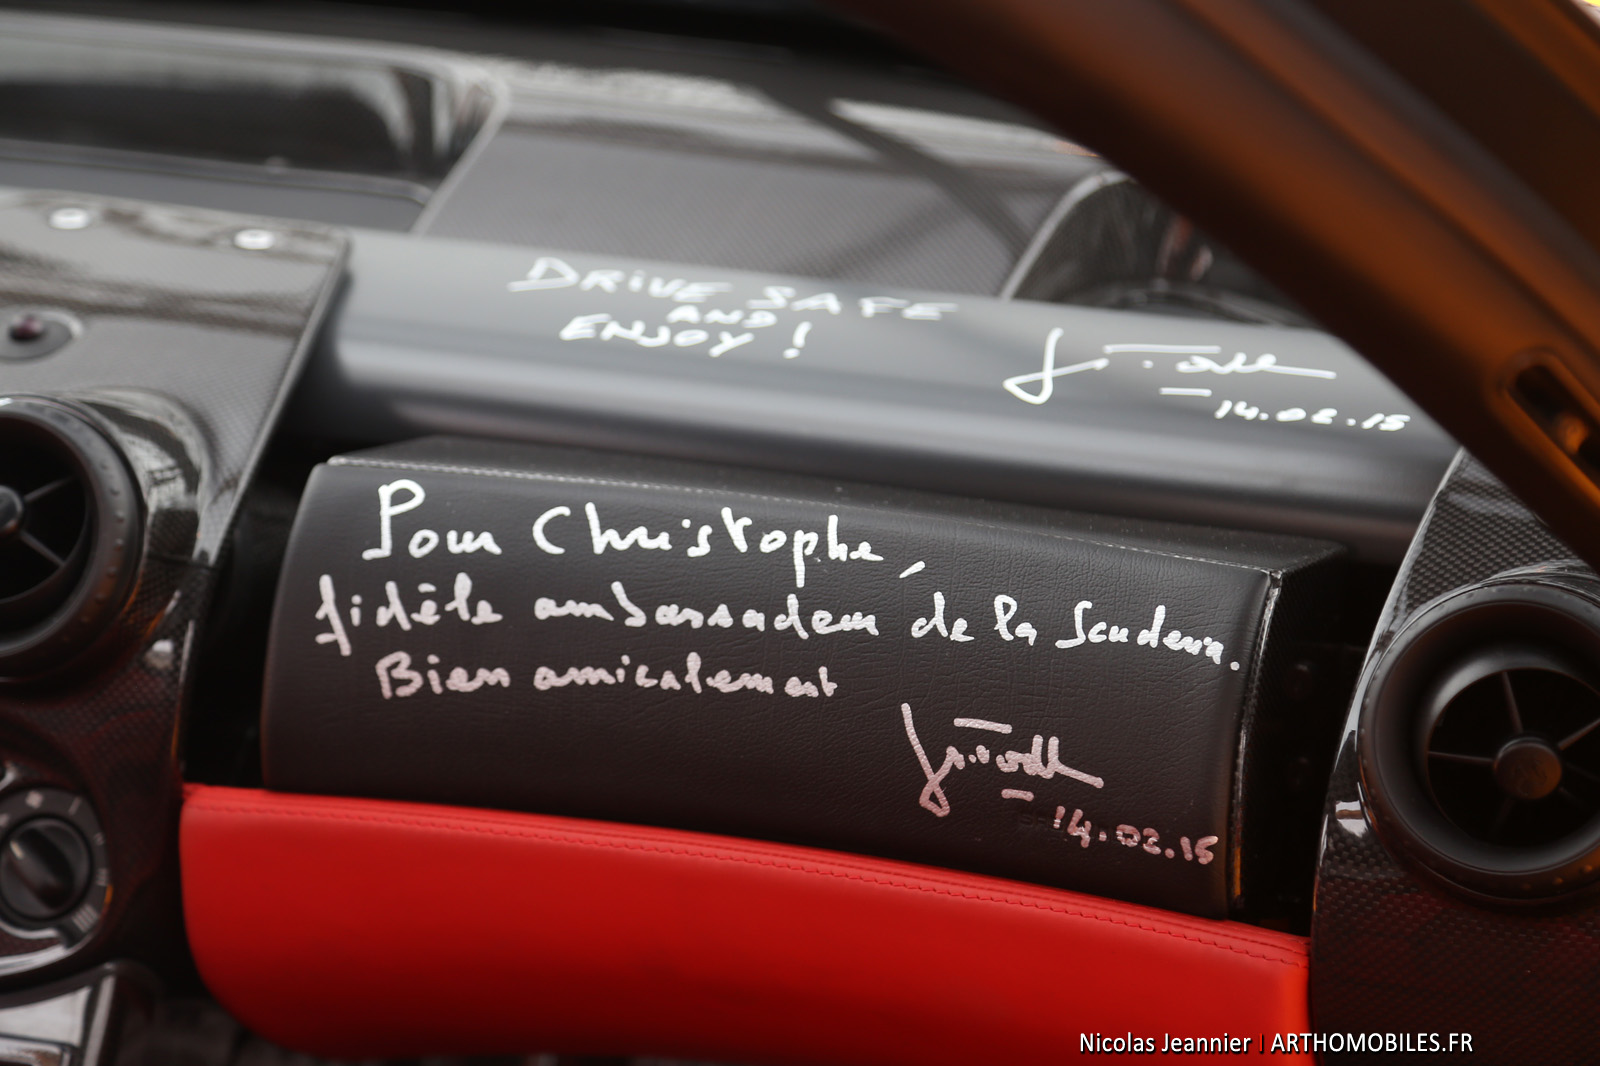 DRIVE SAFE
AND
ENJOY !
14.02.15
Pour Christophe,
fidèle ambassadeur de la Scuderia.
Bien amicalement
14.02.15
Nicolas Jeannier | ARTHOMOBILES.FR